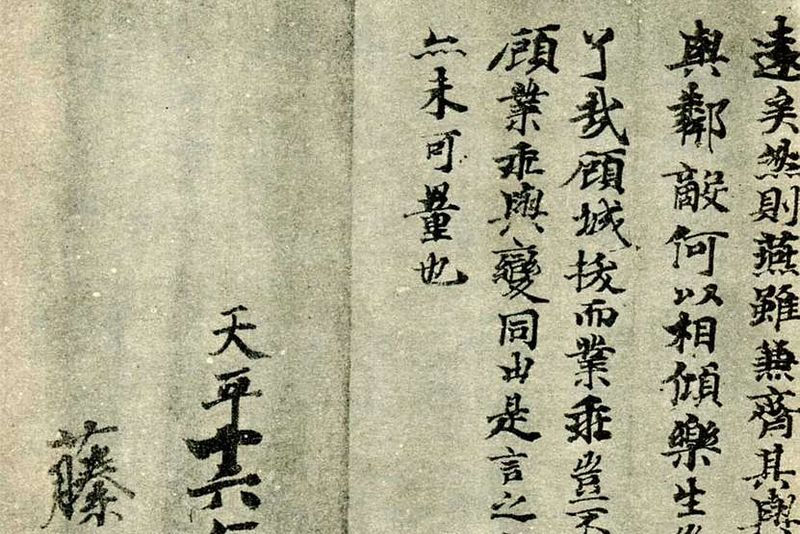 遠矣然則燕雖兼齊其與
與鄰敵何以相傾樂生
了哉顧城拔而業乖豈不
顧業乖與變同由是言之
亦未可量也
天平十六年
藤